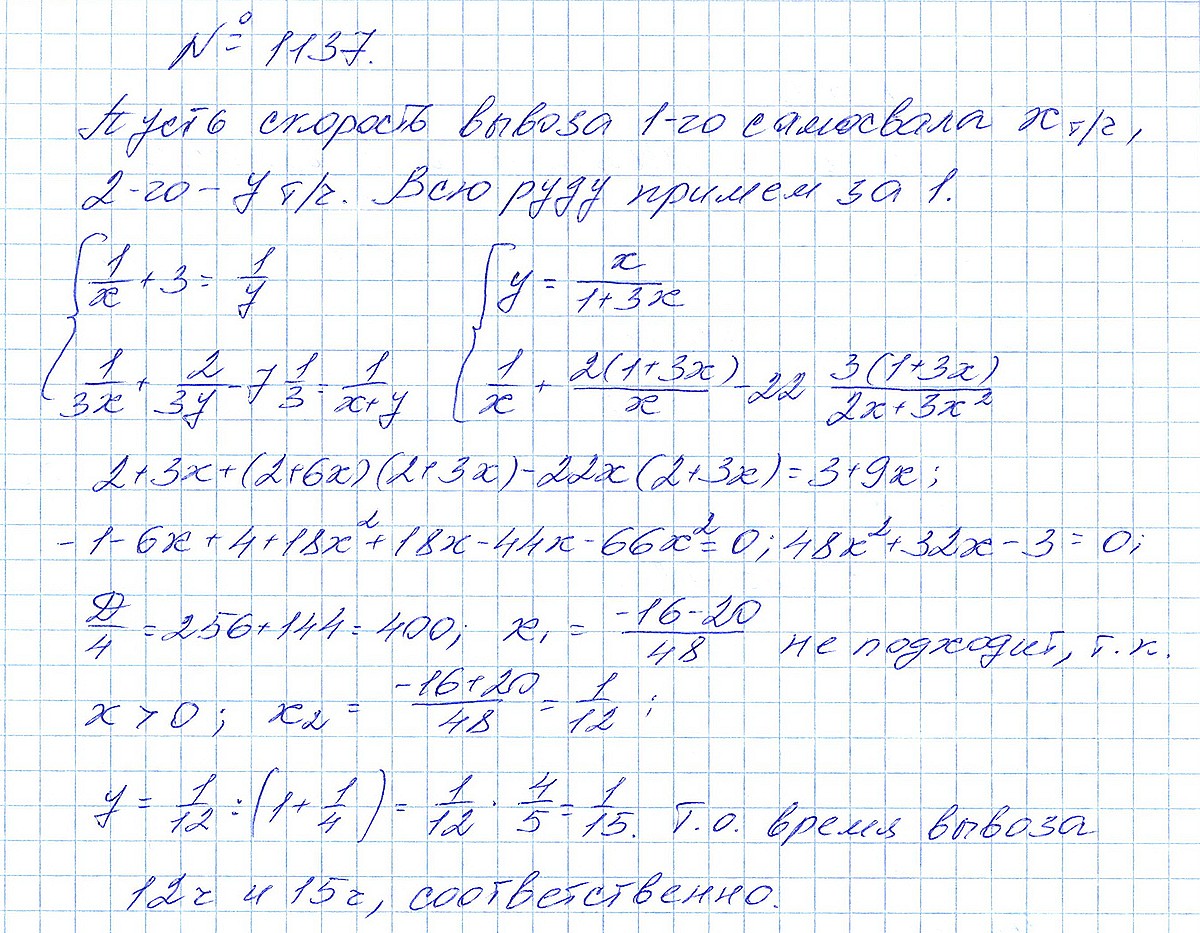 № 1137.
Пусть скорость вывоза 1-го самосвала x т/ч,
2-го – y т/ч. Всю руду примем за 1.
{ 1/x + 3 = 1/y { y = x/(1+3x)
1/(3x) + 2/(3y) - 7 1/3 = 1/(x+y) 1/x + 2(1+3x)/x - 22 3(1+3x)/(2x+3x²)
2+3x+(2+6x)(2+3x)-22x(2+3x)=3+9x;
-1-6x+4+18x²+18x-44x-66x²=0; 48x²+32x-3=0;
D/4 = 256+144=400; x₁ = (-16-20)/48 не подходит, т.к.
x > 0; x₂ = (-16+20)/48 = 1/12;
y = 1/12 : (1+1/4) = 1/12 · 4/5 = 1/15. Т.о. время вывоза
12ч и 15ч, соответственно.